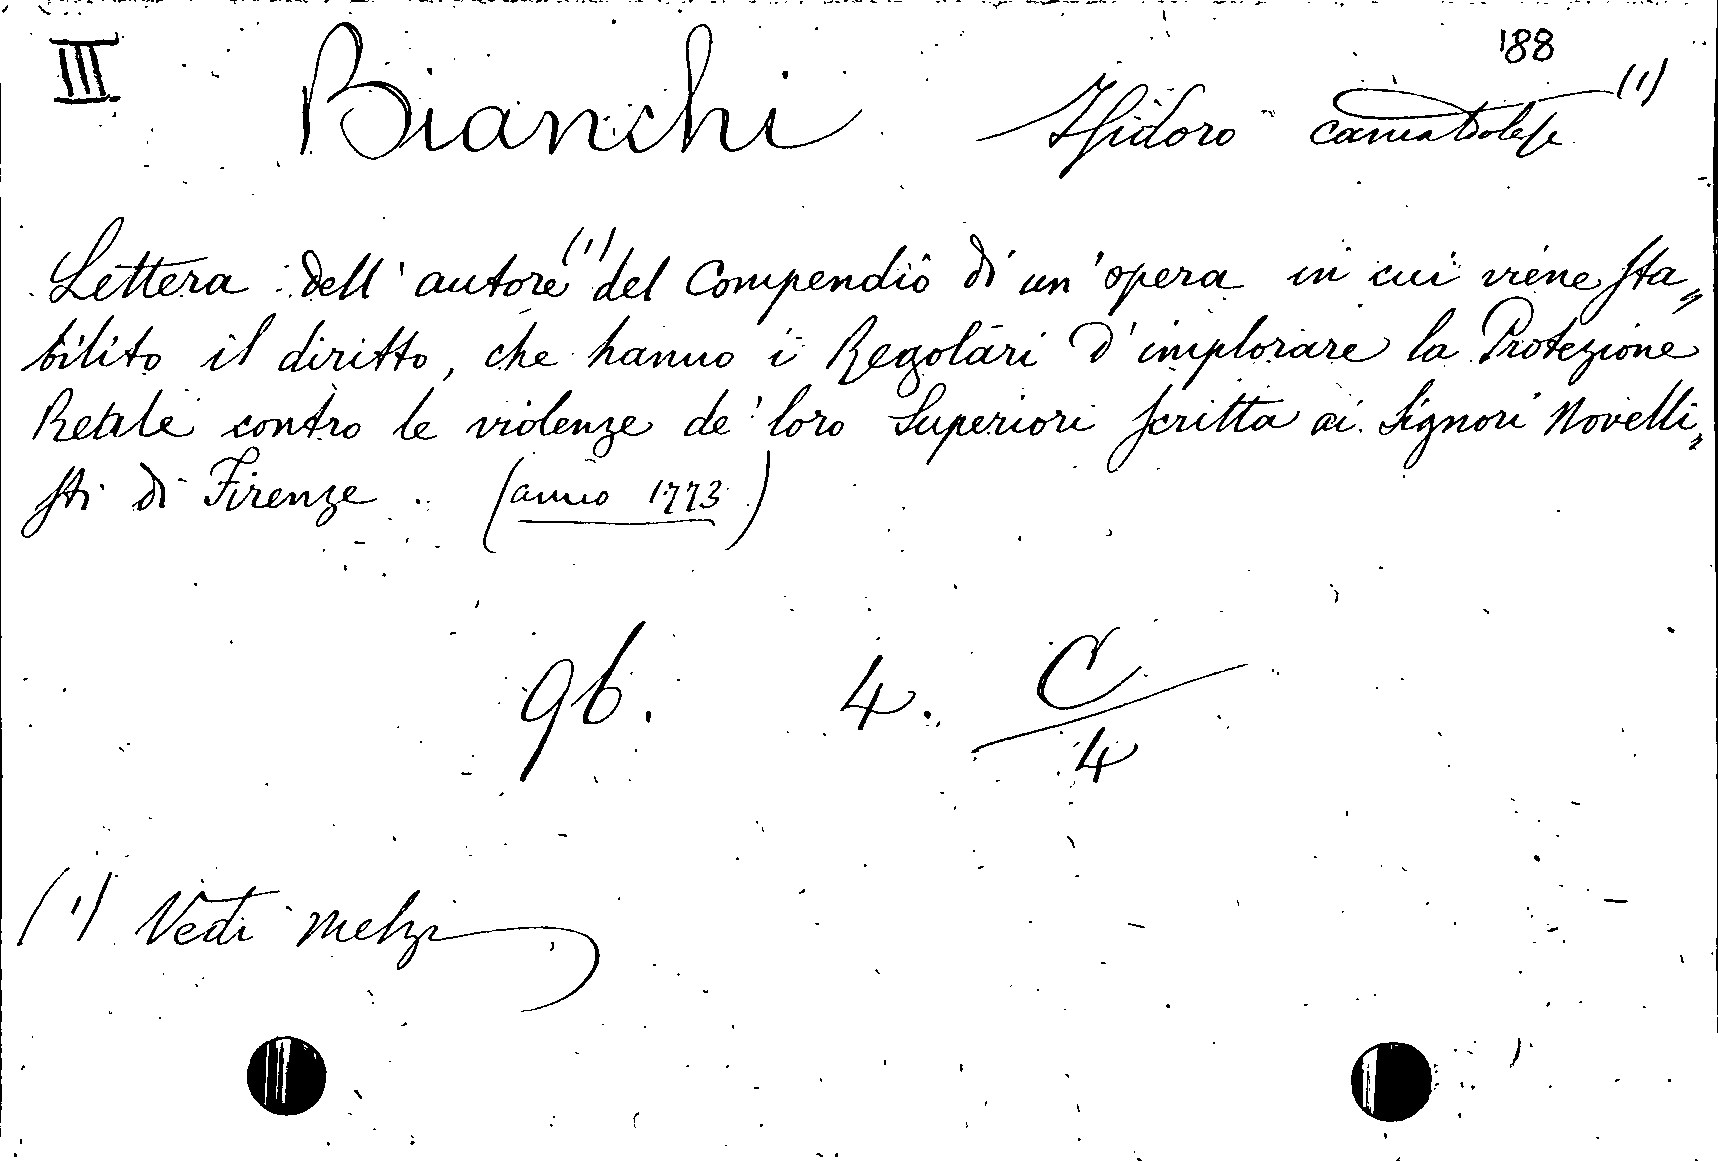 III Bianchi Isidoro camaldolese (1) 188
Lettera dell'autore (1) del Compendio di un'opera in cui viene sta„
bilito il diritto, che hanno i Regolari d'implorare la Protezione
Reale contro le violenze de' loro Superiori scritta ai Signori Novelli„
sti di Firenze. (anno 1773)
96. 4. C/4
(1) Vedi Melzi